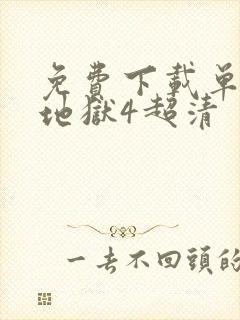 免費下載單
地獄4超清
一去不回頭的